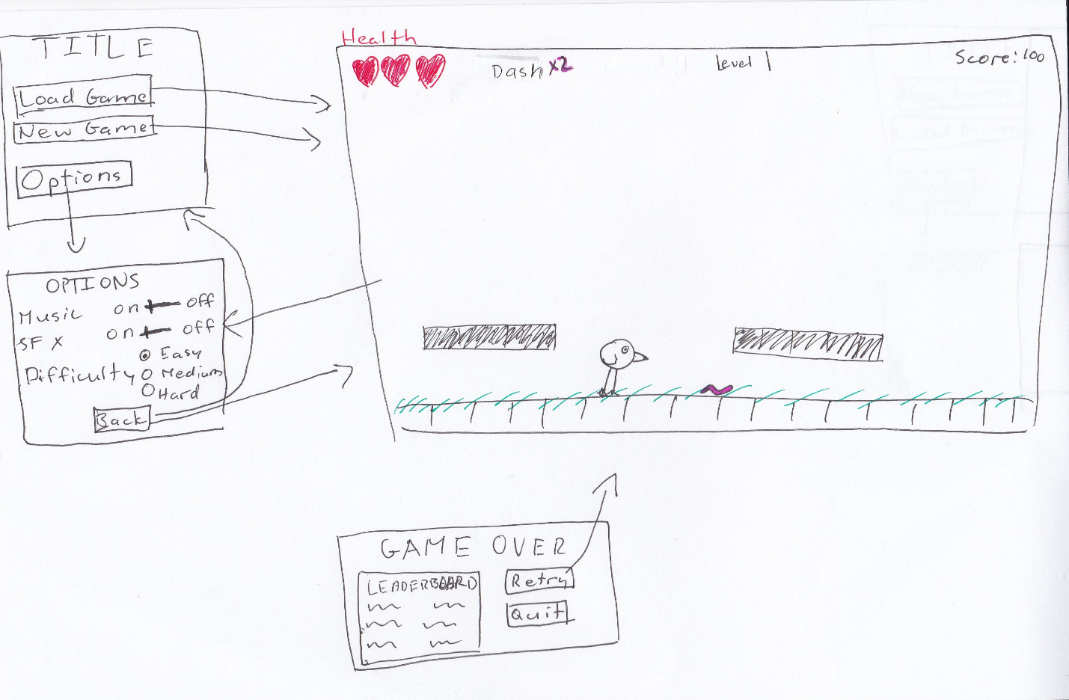 TITLE
Load Game
New Game
Options
OPTIONS
Music on off
SFX on off
Difficulty
Easy
Medium
Hard
Back
Health
Dash x2
Level 1
Score: 100
GAME OVER
LEADERBOARD
Retry
Quit